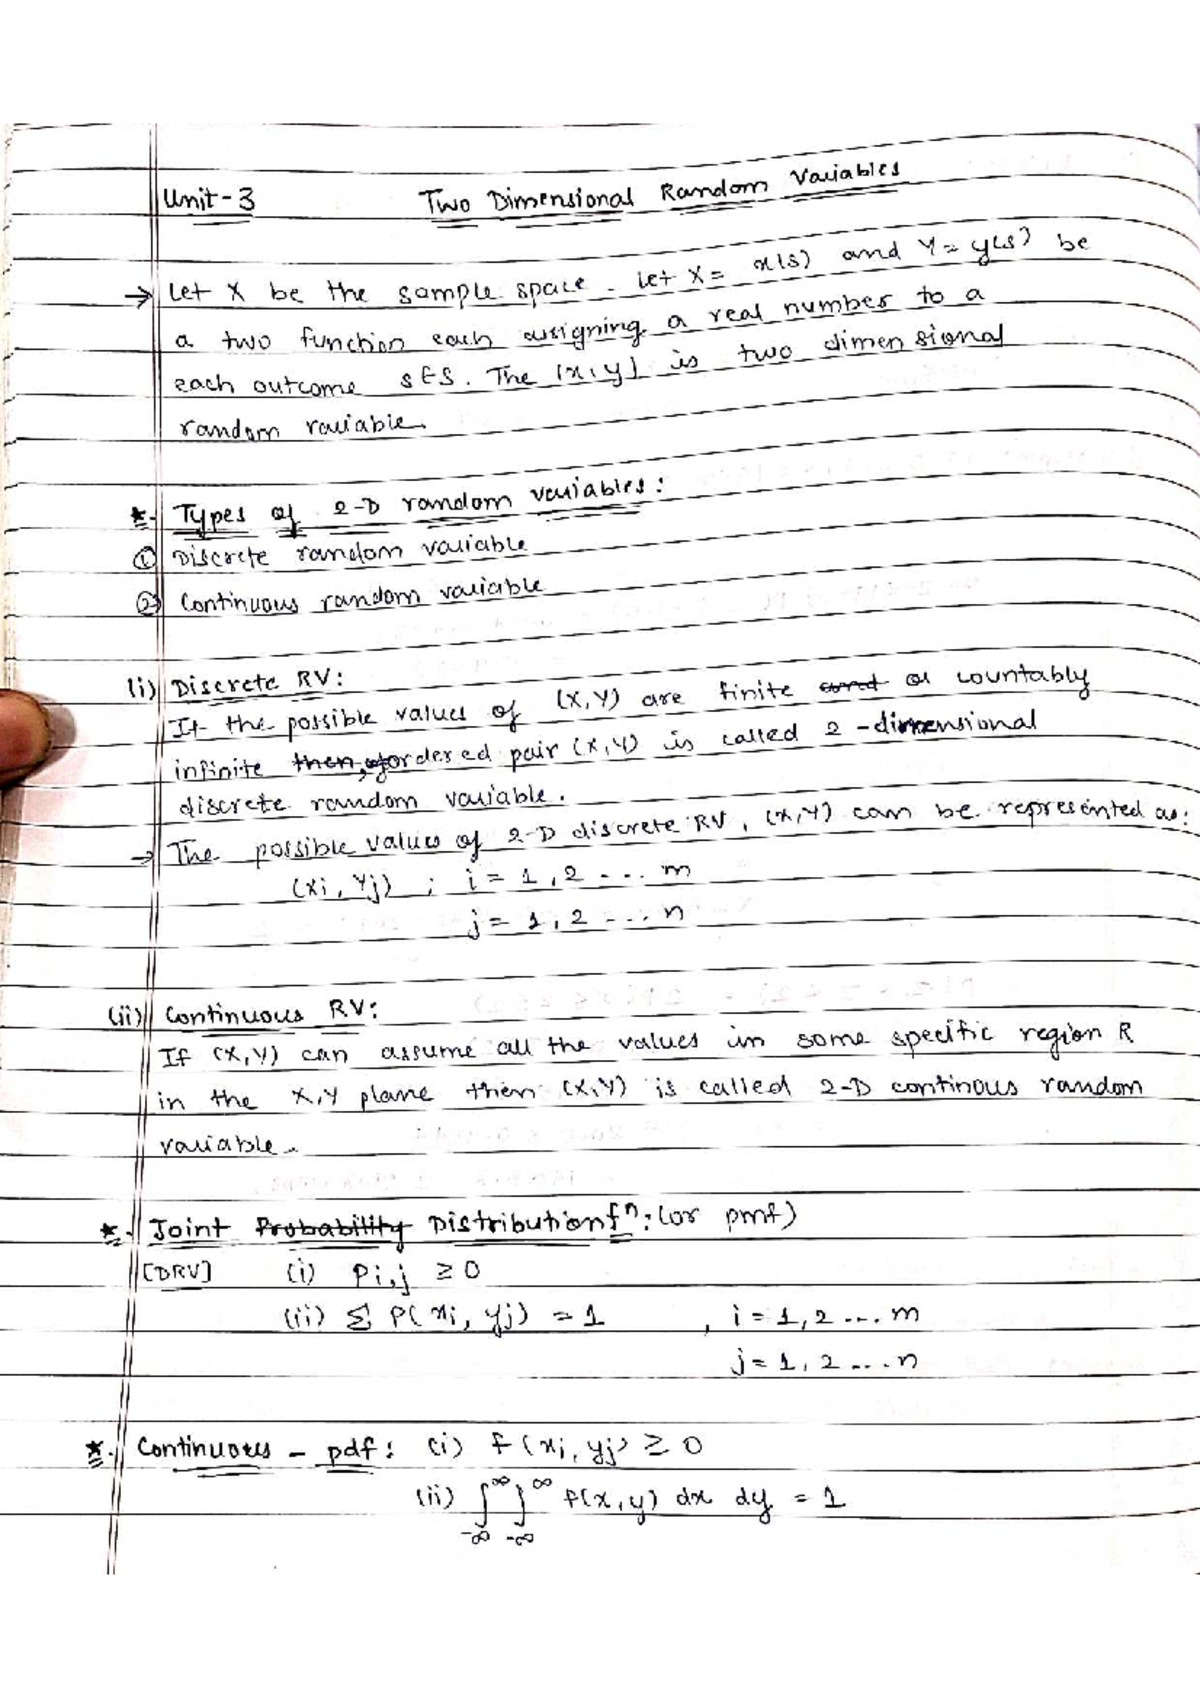 Unit-3 Two Dimensional Random Variables
→ Let X be the sample space. Let X = x(s) and Y = y(s) be
a two function each assigning a real number to a
each outcome s∈S. The (x,y) is two dimensional
random variable.
*. Types of 2-D random variables:
① Discrete random variable
② Continuous random variable
(i) Discrete RV:
If the possible values of (X,Y) are finite and or countably
infinite then, of ordered pair (X,Y) is called 2-dimensional
discrete random variable.
→ The possible values of 2-D discrete RV, (X,Y) can be represented as:
(xi, Yj) ; i = 1,2 .... m
j = 1,2 .... n
(ii) Continuous RV:
If (X,Y) can assume all the values in some specific region R
in the X,Y plane then (X,Y) is called 2-D continous random
variable.
*. Joint Probability Distribution fⁿ: (or pmf)
[DRV] (i) Pi,j ≥ 0
(ii) Σ P(xi, yj) = 1 , i = 1,2 .... m
j = 1,2 .... n
*. Continuous - pdf: (i) f(xi, yj) ≥ 0
(ii) ∫_{-∞}^{∞} ∫_{-∞}^{∞} f(x,y) dx dy = 1